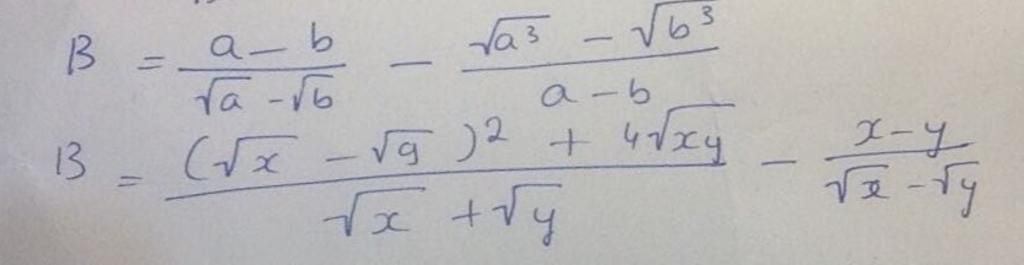 B = \frac{a - b}{\sqrt{a} - \sqrt{b}} - \frac{\sqrt{a^3} - \sqrt{b^3}}{a - b}
B = \frac{(\sqrt{x} - \sqrt{9})^2 + 4\sqrt{xy}}{\sqrt{x} + \sqrt{y}} - \frac{x - y}{\sqrt{x} - \sqrt{y}}